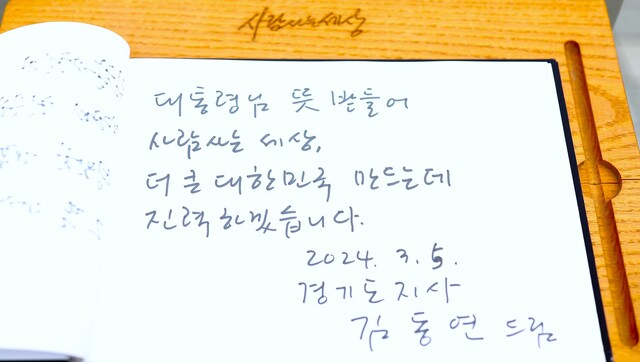 사람사는세상
대통령님 뜻 받들어
사람사는 세상,
더 큰 대한민국 만드는데
진력하겠습니다.
2024. 3. 5.
경기도지사
김동연 드림